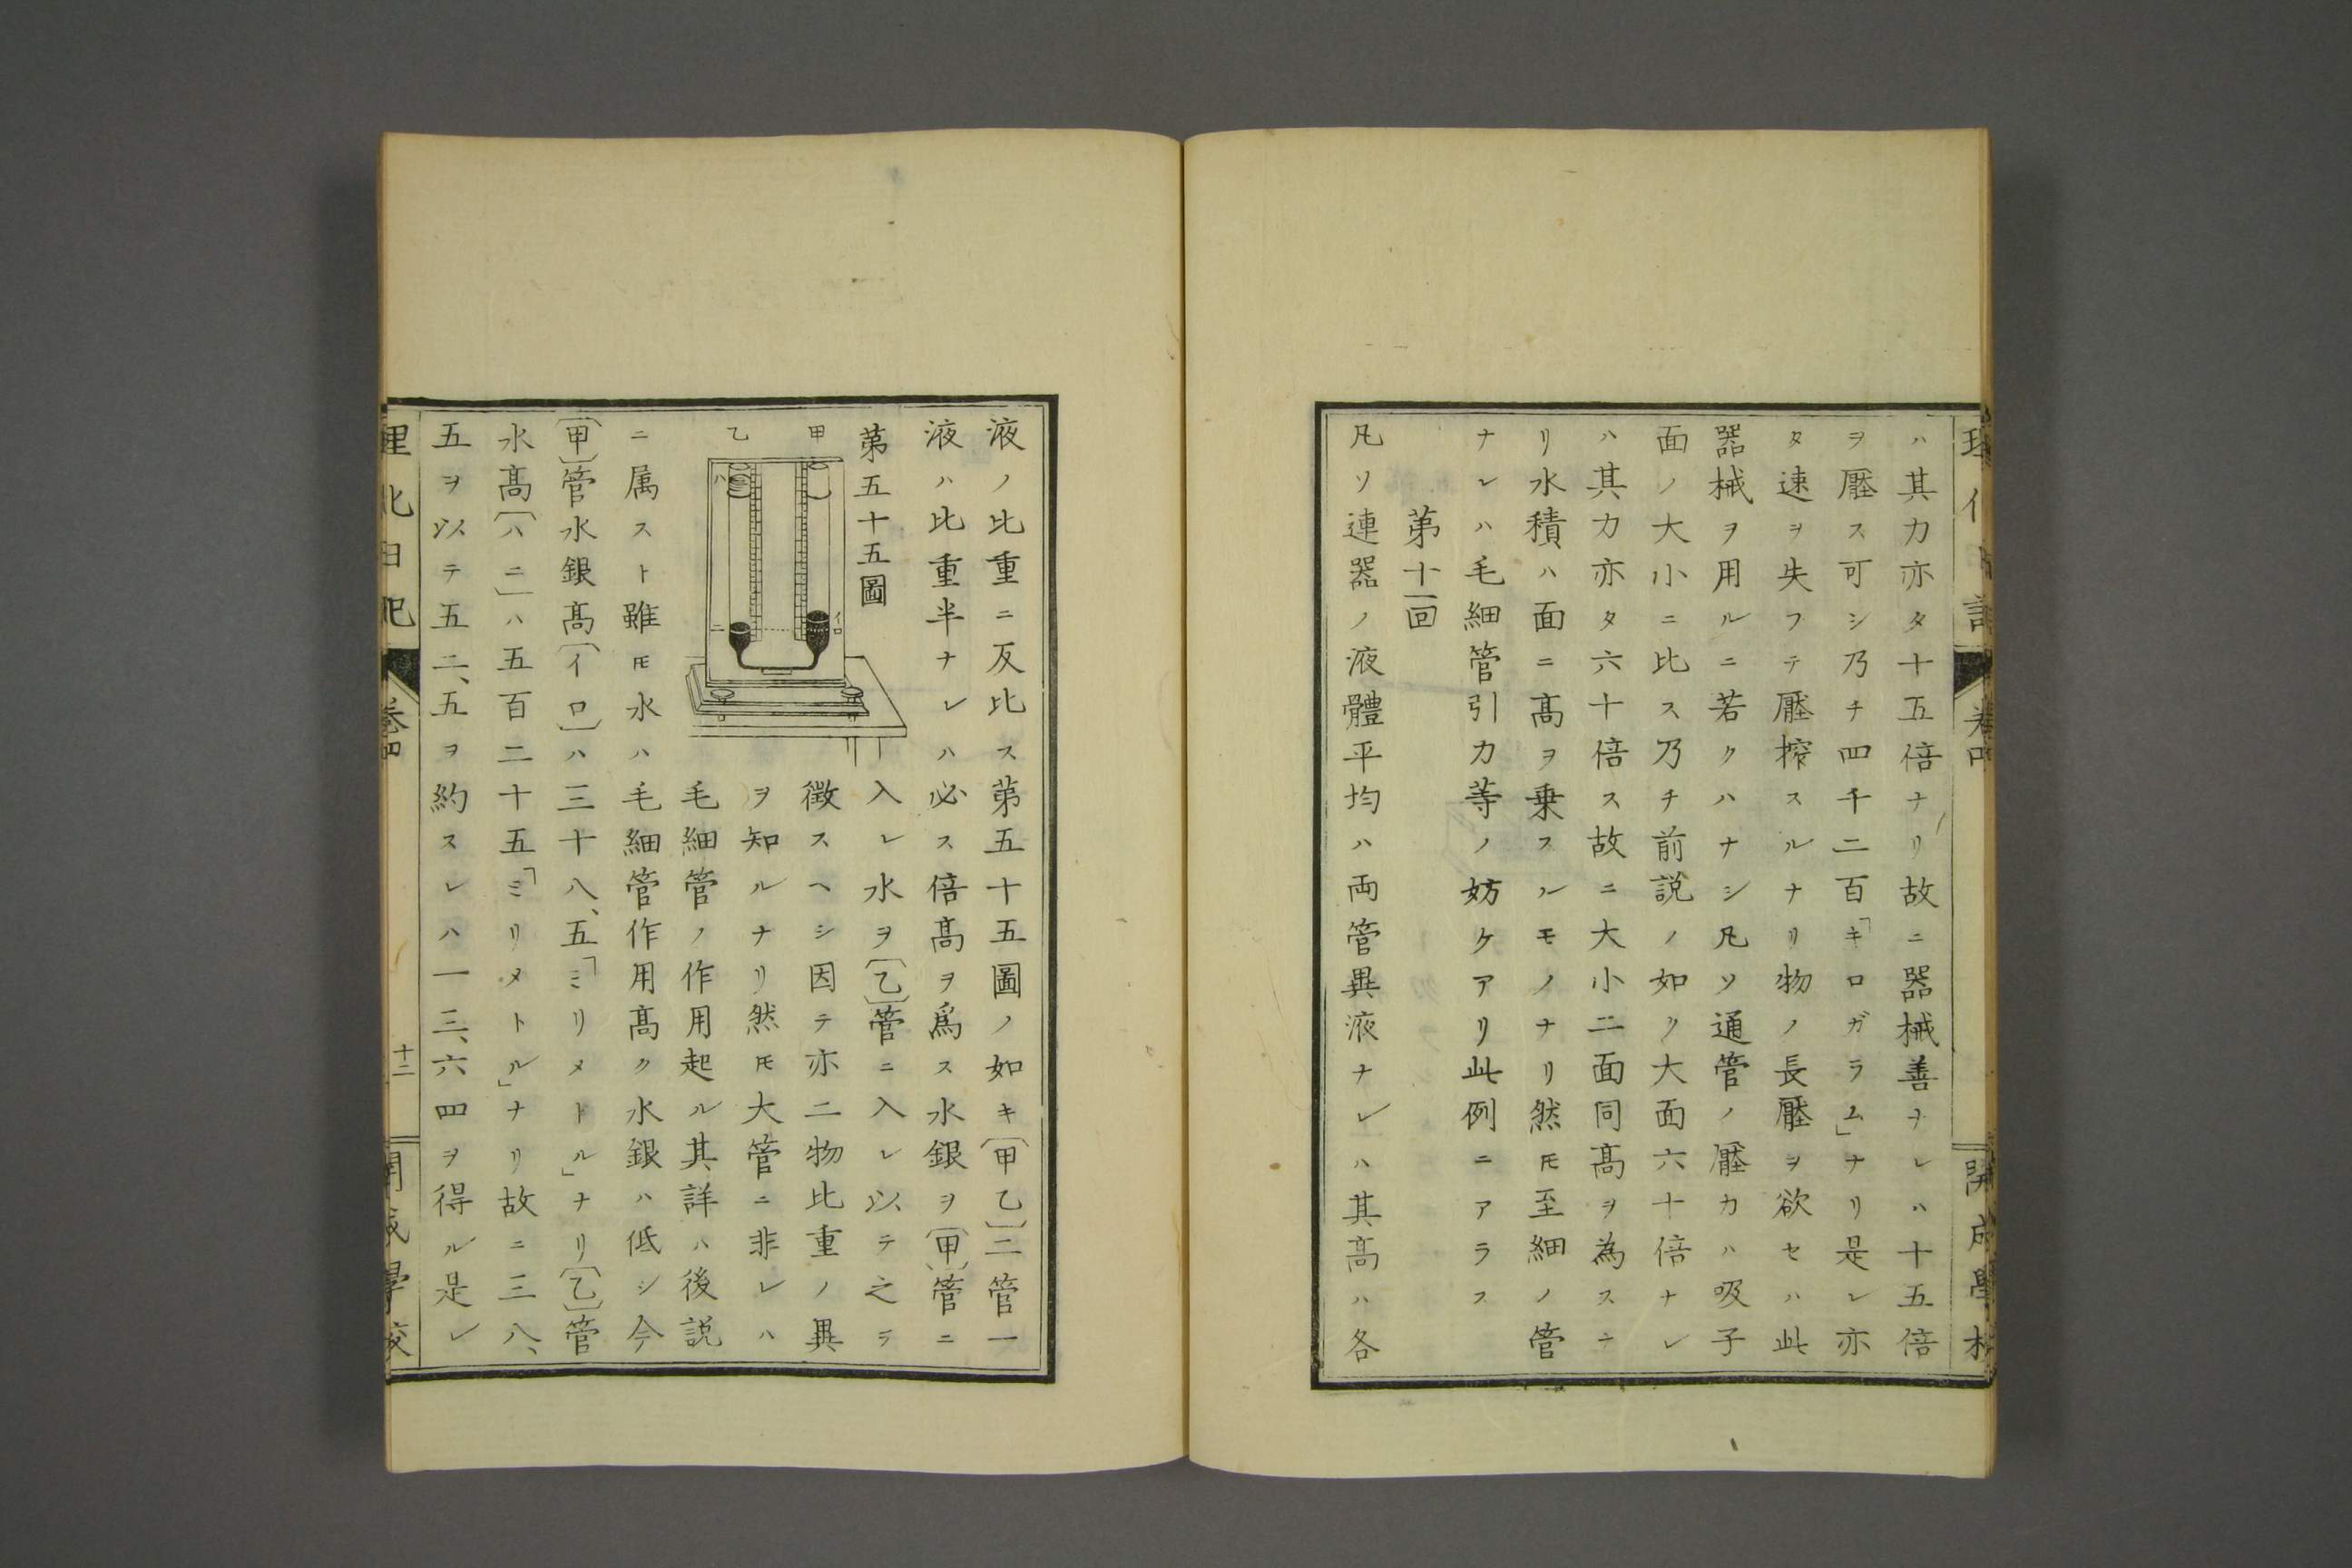 ハ其力亦タ十五倍ナリ故ニ器械善ナレハ十五倍
ヲ壓ス可シ乃チ四千二百「キロガラム」ナリ是レ亦
タ速ヲ失フテ壓搾スルナリ物ノ長壓ヲ欲セハ此
器械ヲ用ルニ若クハナシ凡ソ通管ノ壓力ハ吸子
面ノ大小ニ比ス乃チ前説ノ如ク大面六十倍ナレ
ハ其力亦タ六十倍ス故ニ大小二面同髙ヲ為スニ
リ水積ハ面ニ髙ヲ乗スルモノナリ然𪜈至細ノ管
ナレハ毛細管引力等ノ妨ケアリ此例ニアラス
第十一回
凡ソ連器ノ液體平均ハ両管異液ナレハ其髙ハ各
液ノ比重ニ反比ス第五十五圖ノ如キ〔甲乙〕二管一
液ハ比重半ナレハ必ス倍髙ヲ爲ス水銀ヲ〔甲〕管ニ
第五十五圖
甲
乙
ハ
ニ
イ
ロ
入レ水ヲ〔乙〕管ニ入レ以テ之ヲ
徴スヘシ因テ亦二物比重ノ異
ヲ知ルナリ然𪜈大管ニ非レハ
毛細管ノ作用起ル其詳ハ後説
ニ属スト雖𪜈水ハ毛細管作用髙ク水銀ハ低シ今
〔甲〕管水銀髙〔イロ〕ハ三十八、五「ミリメトル」ナリ〔乙〕管
水髙〔ハニ〕ハ五百二十五「ミリメトル」ナリ故ニ三八、
五ヲ以テ五二、五ヲ約スレハ一三、六四ヲ得ル是レ
卷四
十二
開成學校